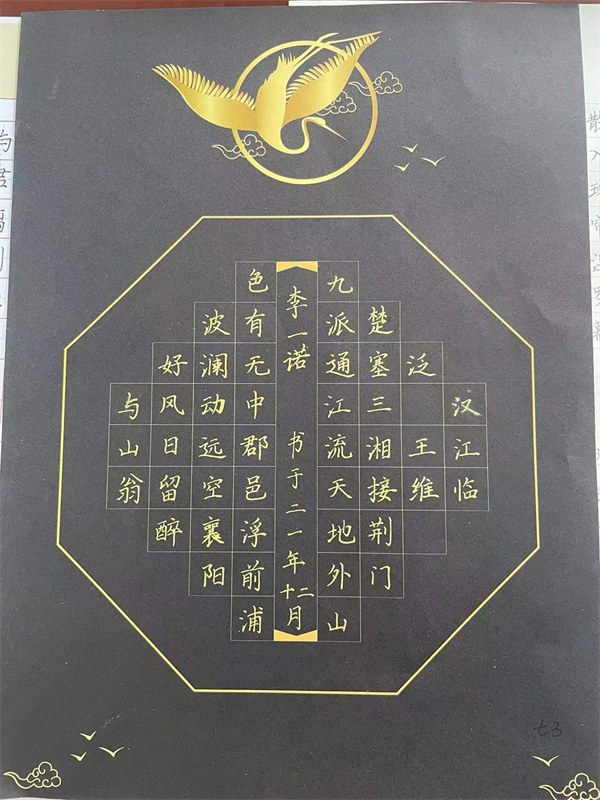 汉江临
泛 王维
楚塞三湘接荆门
九派通江流天地外山
李一诺 书于二一年十二月
色有无中郡邑浮前浦
波澜动远空襄阳
好风日留醉
与山翁
七3